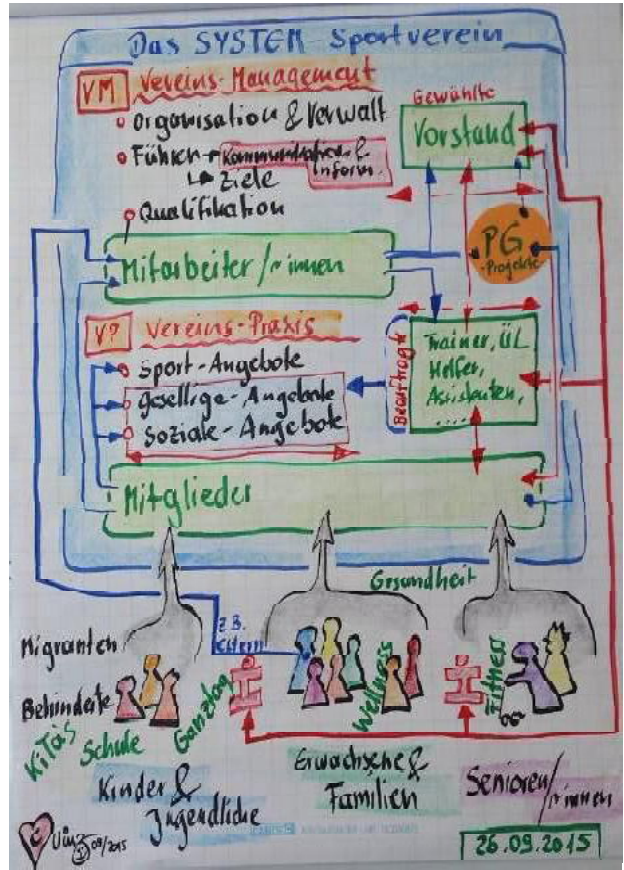 Das SYSTEM Sportverein
VM Vereins-Management
Organisation & Verwalt
Führen → Kommunikation &
Inform.
Ziele
Qualifikation
Gewählte
Vorstand
PG
-Projekte
Mitarbeiter/r innen
V? Vereins-Praxis
Sport-Angebote
gesellige-Angebote
Soziale-Angebote
Beauftragt
Trainer, ÜL
Helfer,
Assistenten,
....
Mitglieder
Gesundheit
z.B.
Eltern
Migranten
Behinderte
KiTas
Schule
Ganztag
Wellness
Fitness
Kinder &
Jugendliche
Erwachsene &
Familien
Senioren/
r innen
09/2015
26.09.2015